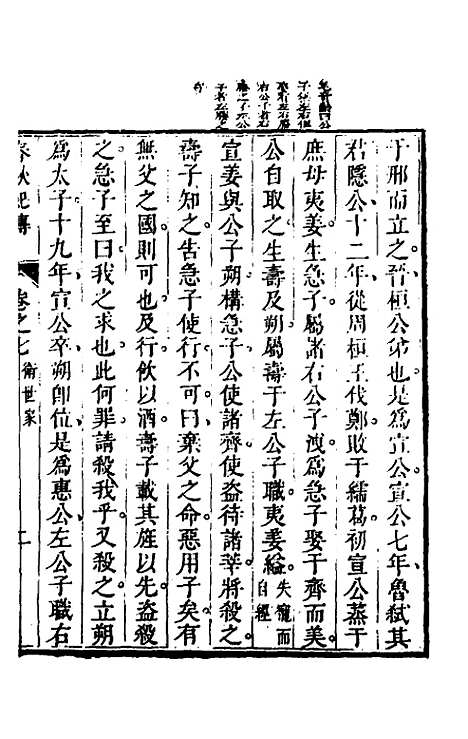 于邢而立之晉桓公弟也是爲宣公宣公七年魯弑其
君隱公十二年從周桓王伐鄭敗于繻葛初宣公蒸于
庶母夷姜生急子屬諸右公子洩爲急子娶于齊而美
公自取之生壽及朔屬壽于左公子職夷姜縊失寵而自經
宣姜與公子朔構急子公使諸齊使盜待諸莘將殺之
壽子知之告急子使行不可曰棄父之命惡用子矣有
無父之國則可也及行飲以酒壽子載其旌以先盜殺
之急子至曰我之求也此何罪請殺我乎又殺之立朔
爲太子十九年宣公卒朔卽位是爲惠公左公子職右
春秋紀傳 卷之七 衛世家 二